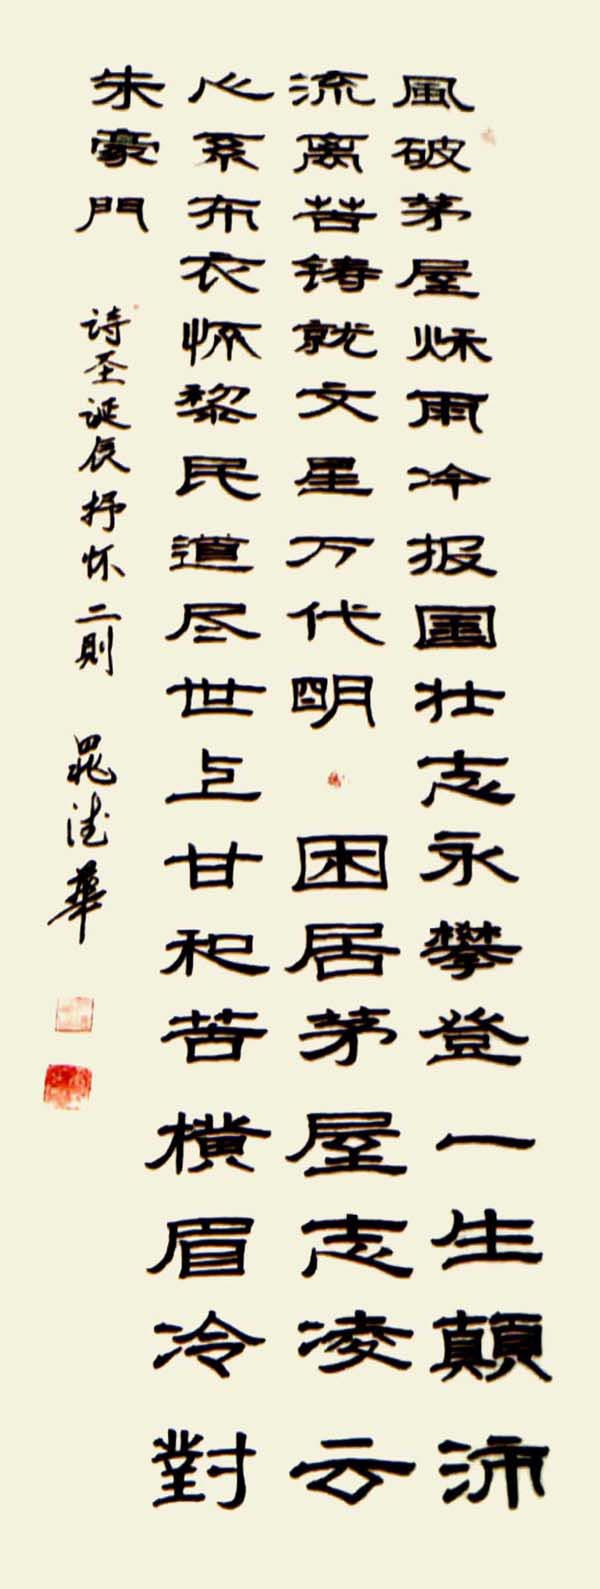 風破茅屋秌雨冷报国壮志永攀登一生顛沛
流离苦铸就文星万代明 困居茅屋志凌云
心系布衣怀黎民道尽世上甘和苦横眉冷對
朱豪門 诗圣诞辰抒怀二則 晁德華